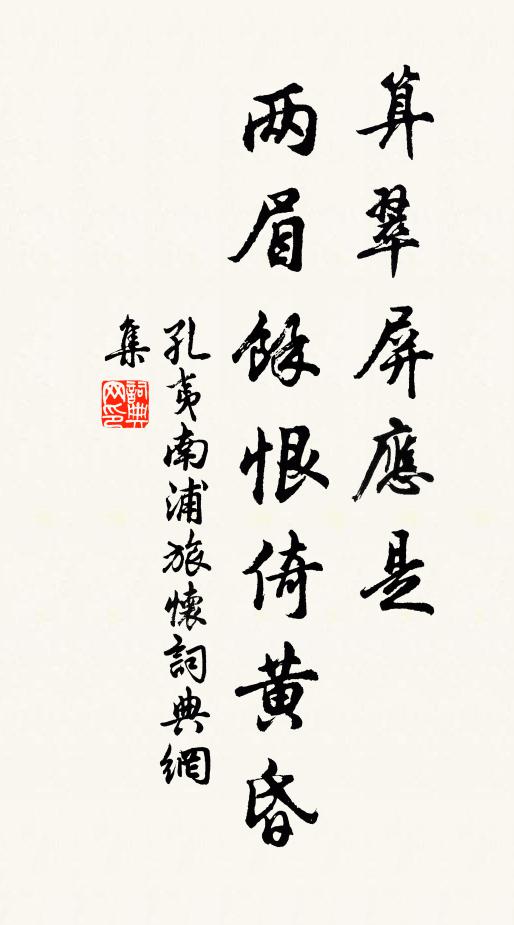 算翠屏應是
两眉餘恨倚黄昏
孔夷南浦旅懷詞典網
集
詞典
网印